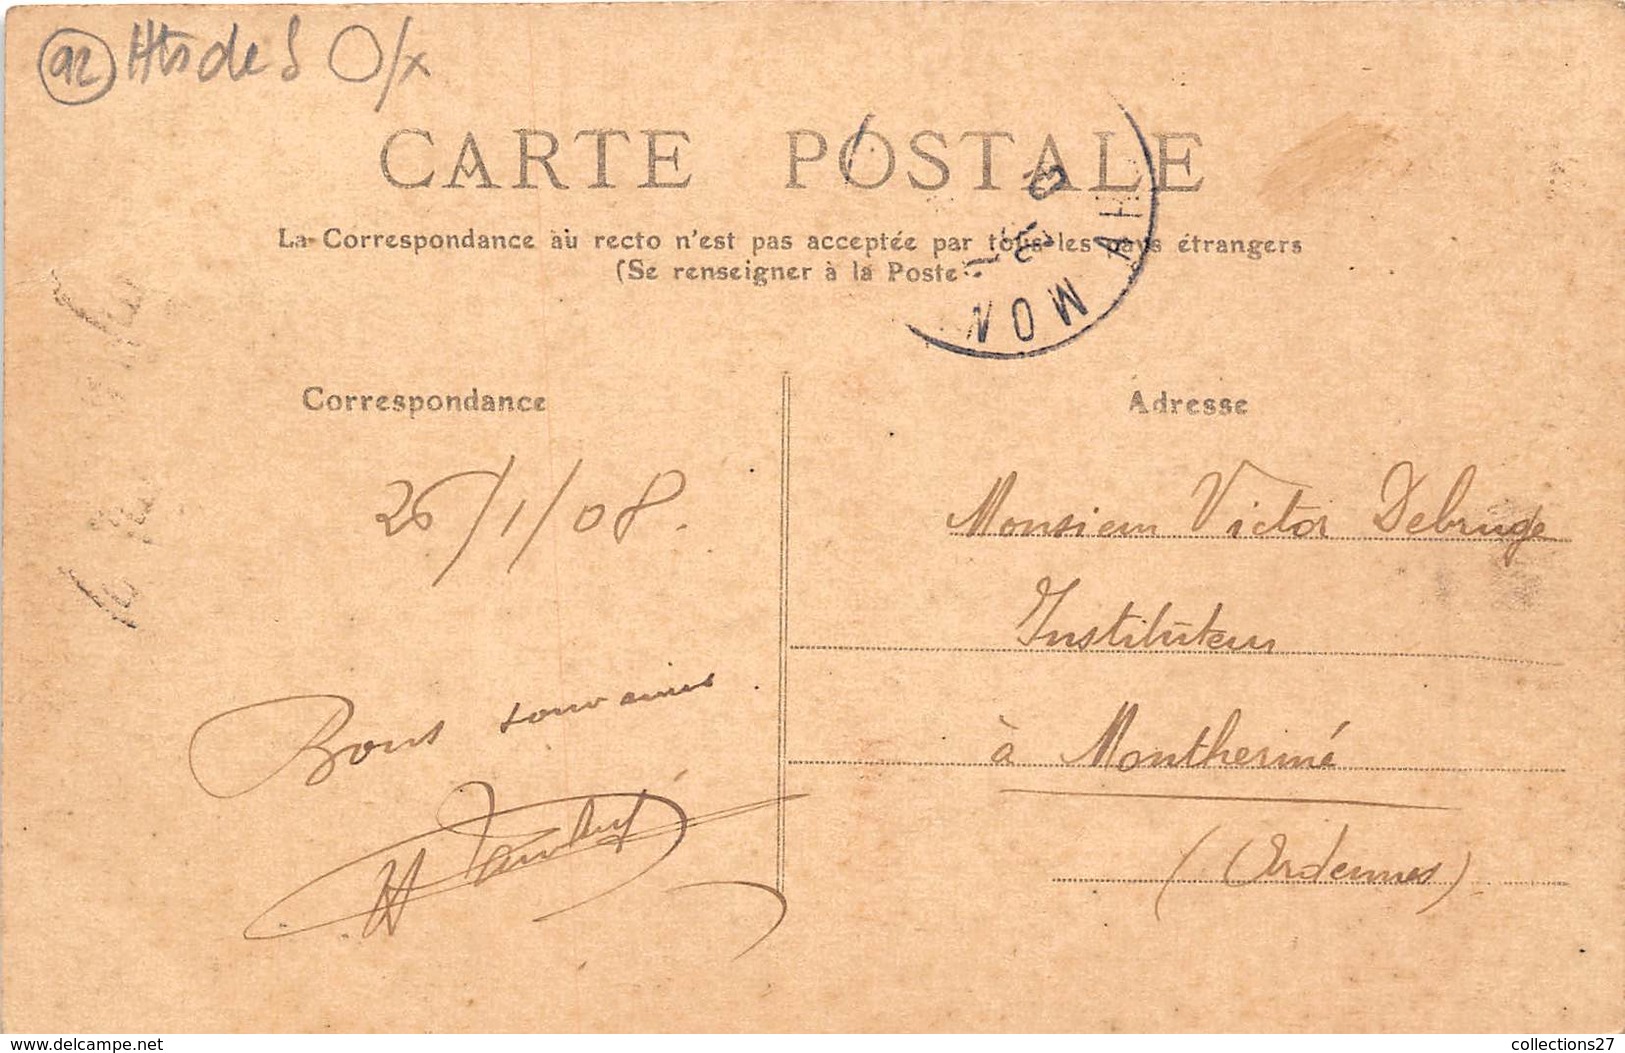 92 Hts de S
CARTE POSTALE
La Correspondance au recto n'est pas acceptée par tous les pays étrangers
(Se renseigner à la Poste
MON
Correspondance
Adresse
26/1/08.
Monsieur Victor Debruge
Instituteur
Bons souvenirs
à Monthermé
(Ardennes)
delcampe.net
collections27